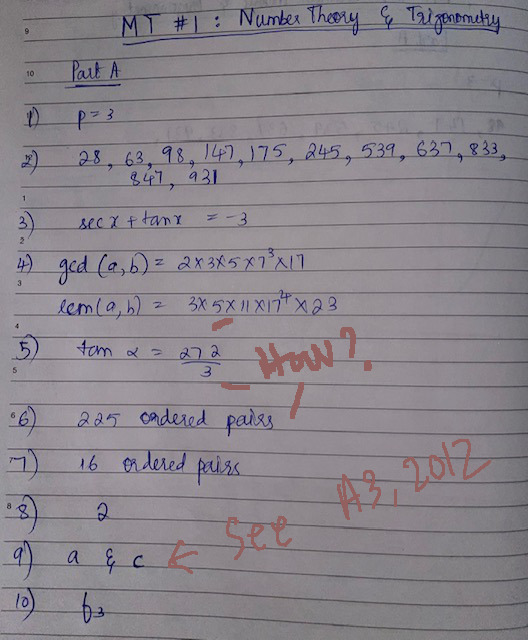 MT #1 : Number Theory & Trigonometry
Part A
1) p = 3
2) 28, 63, 98, 147, 175, 245, 539, 637, 833,
847, 931
3) sec x + tan x = -3
4) gcd (a, b) = 2×3×5×7³×17
lcm(a, b) = 3×5×11×17⁴×23
5) tan α = 272/3 How?
6) 225 ordered pairs
7) 16 ordered pairs
8) 2
9) a & c ← See A3, 2012
10) f₃